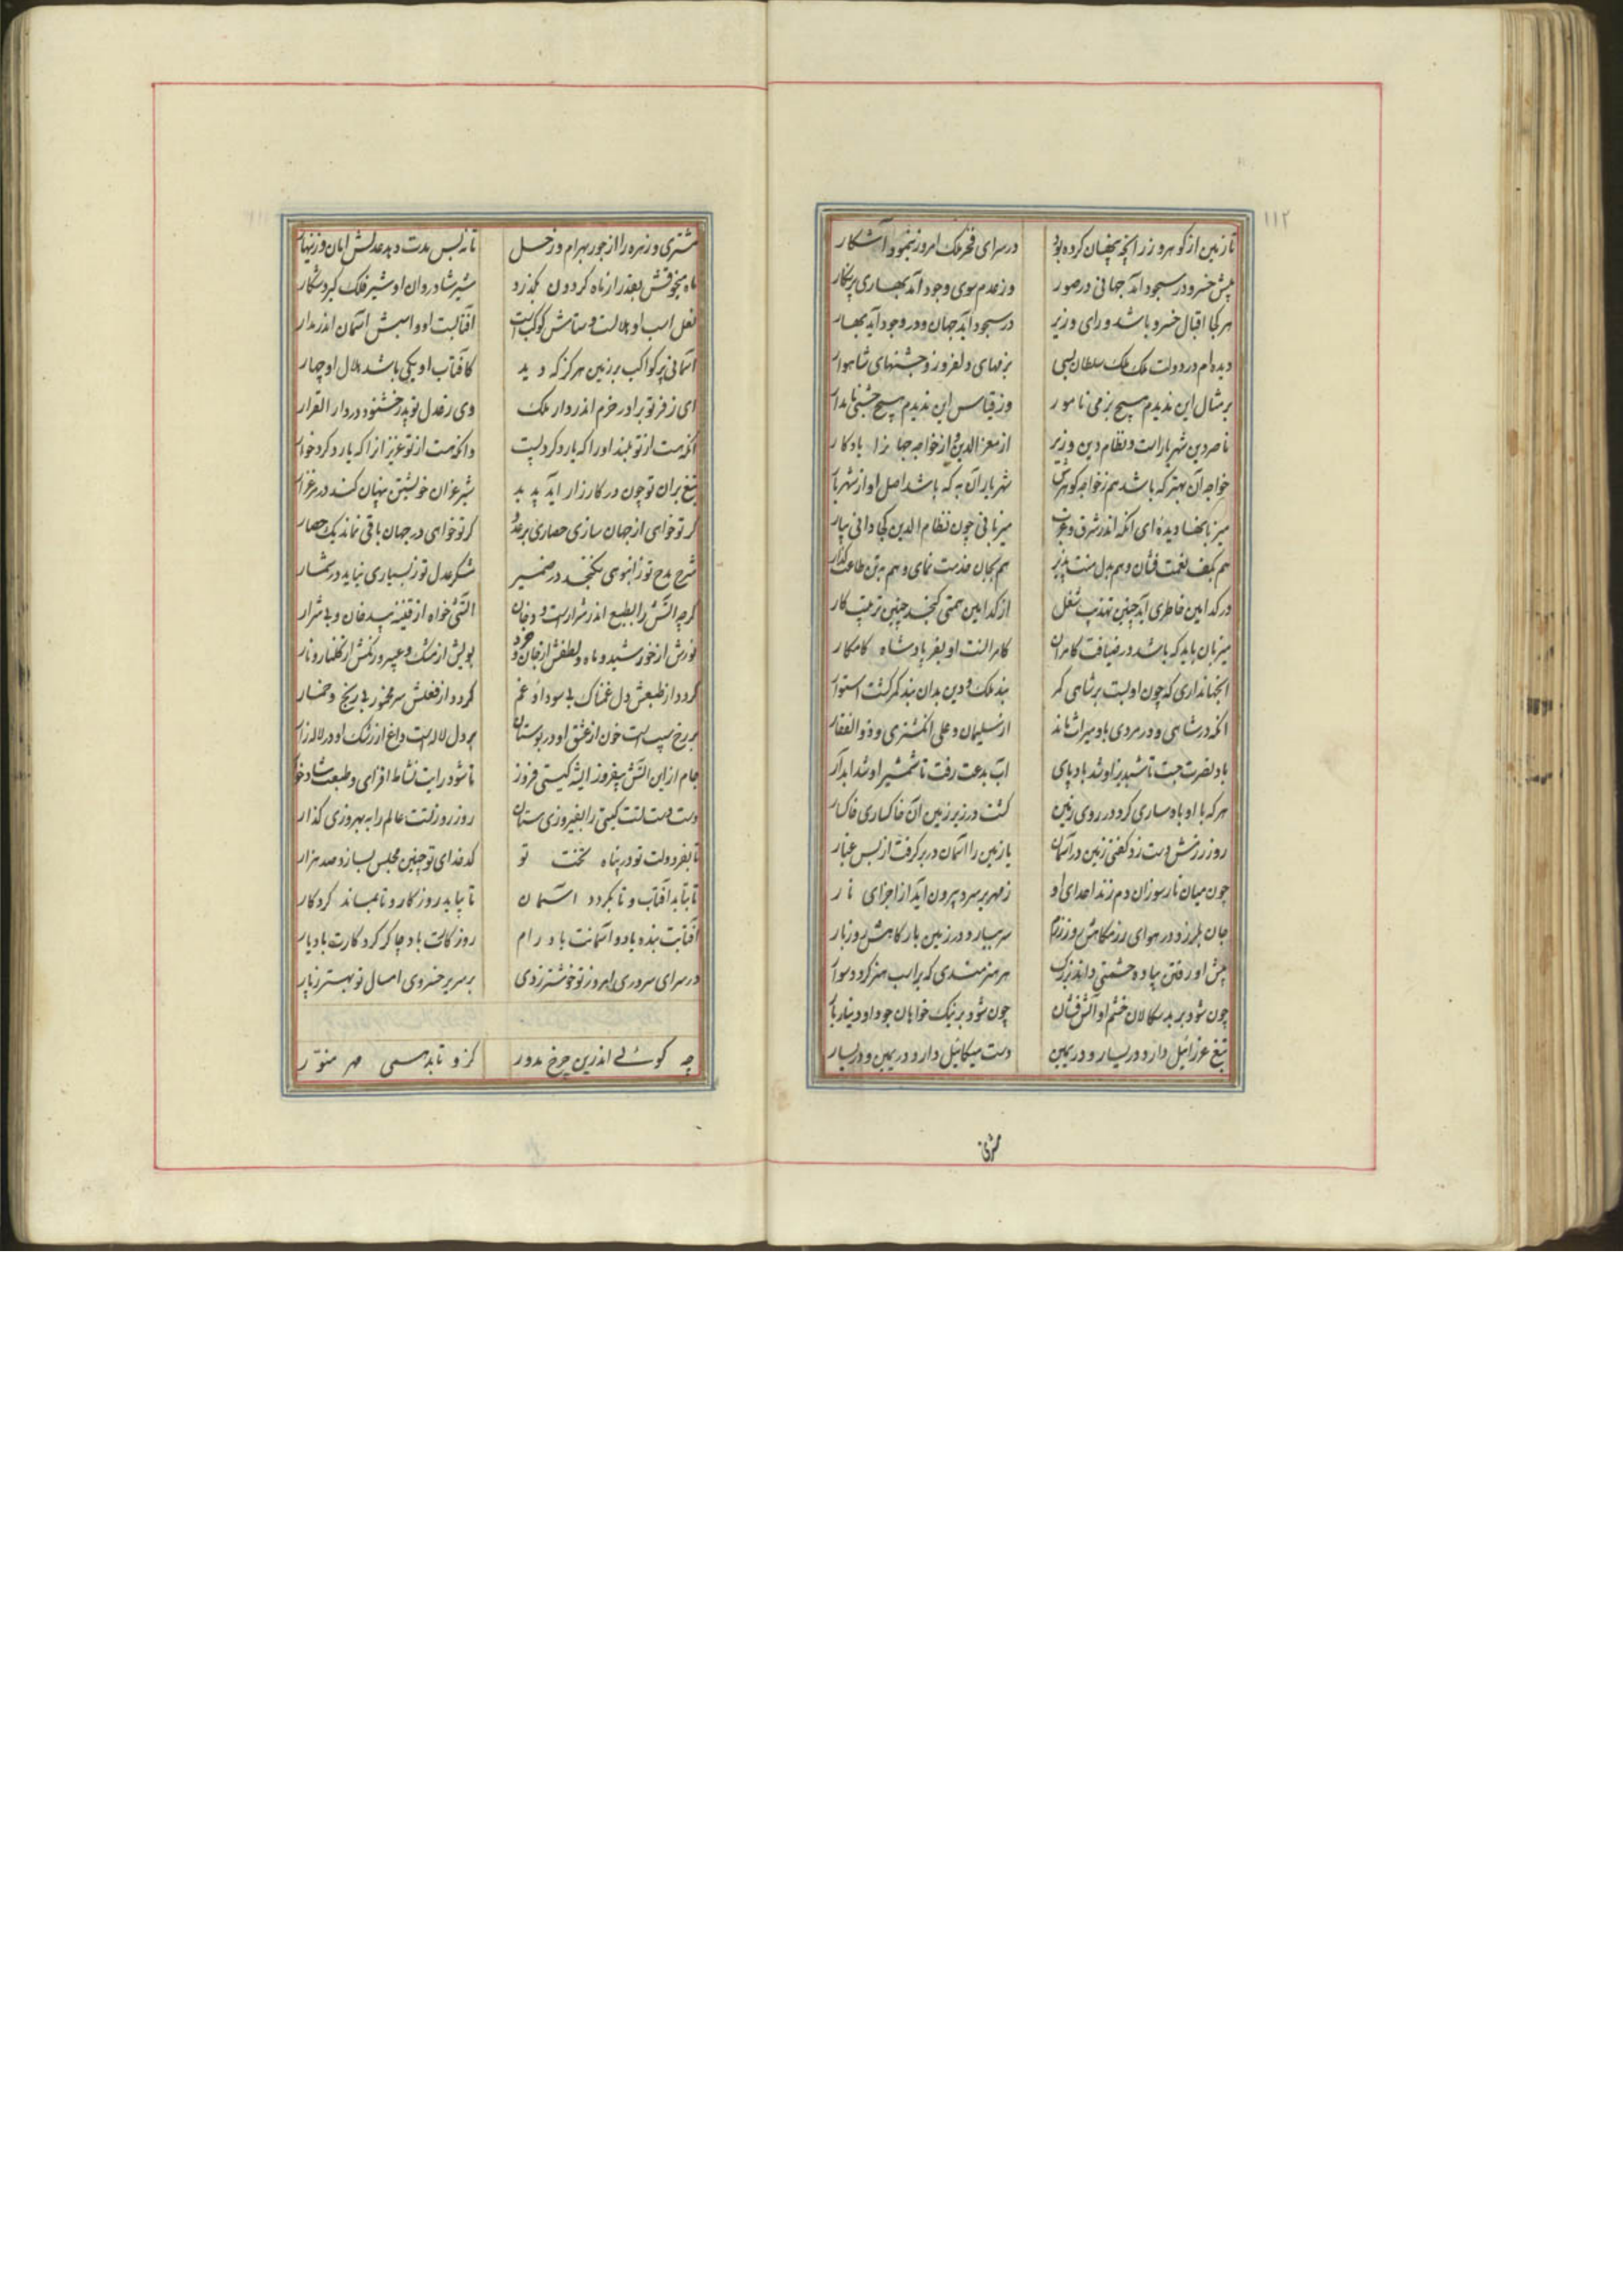 ۱۱۲
تا زمین از کوهر و زر آنچه پنهان کرده بود در سرای فخر ملک امروز بنمود آشکار
پیش خسرو در سجود آمد جهانی در صور وز عدم سوی وجود آمد بهاری پرنکار
هر کجا اقبال خسرو باشد و رای وزیر در سجود آید جهان و در وجود آید بهار
دیده‌ام در دولت ملک ملک سلطان بسی بزمهای دلفروز و جشنهای شاهوار
بر مثال این ندیدم هیچ بزمی نامور وز قیاس این ندیدم هیچ جشنی نامدار
ناصر دین شهریارست و نظام دین وزیر از معز الدین و از خواجه جهانرا یادکار
خواجه آن بهتر که باشد هم ز خواجه کوهرش شهریار آن به که باشد اصل او از شهریار
میزبانیها دیده‌ای آنکه اندر شرق و غرب میزبانی چون نظام الدین کجا دانی بیار
هم بکف نعمت فشان و هم بدل منت پذیر هم بجان خدمت نمای و هم بتن طاعت کذار
در کدامین خاطری آید چنین تهذیب شغل از کدامین همتی کنجد چنین ترتیب کار
میزبان باید که باشد در ضیافت کامران کامرانست او بفر پادشاه کامکار
آنجهانداری که چون او بست بر شاهی کمر بند ملک و دین بدان بند کمر کشت استوار
آنکه در شاهی و در مردی باو میراث ماند از سلیمان و علی انکشتری و ذو الفقار
باد نصرت جست تا شبدیز او شد بادپای آب بدعت رفت تا شمشیر او شد آبدار
هر که با او بادساری کرد در روی زمین کشت در زیر زمین آن خاکساری خاکسار
روز رزمش دست زد کفتی زمین در آسمان یا زمین را آسمان در بر کرفت از بس غبار
چون میان نار سوزان دم زند اعدای او زمهریر سرد بیرون آید از اجزای نار
جان بلرزد در هوای رزمکاهش روز رزم سر بساید در زمین بارکاهش روز بار
پیش او رفتن پیاده حشمتی داند بزرک هر هنرمندی که بر اسب هنر کردد سوار
چون شود بر بدسکالان خشم او آتش فشان چون شود بر نیک خواهان جود او دینار بار
تیغ عزرائیل دارد در یسار و در یمین دست میکائیل دارد در یمین و در یسار
مشتری
مشتری و زهره را از جور بهرام و زحل تا نه بس مدت دهد عدلش امان و زینهار
ماه منجوقش بقدر از ماه کردون بکذرد شیر شادروان او شیر فلک کیرد شکار
نعل اسب او هلالست و ستامش کوکبست آفتابست او و اسبش آسمان اندر مدار
آسمانی پر کواکب بر زمین هرکز که دید کافتاب او یکی باشد هلال او چهار
ای ز فر تو برادر خرم اندر دار ملک وی ز عدل تو پدر خشنود در دار القرار
آنکه هست از تو بلند او را که یارد کرد پست وانکه هست از تو عزیز آنرا که یارد کرد خوار
تیغ بران تو چون در کارزار آید پدید شیر غران خویشتن پنهان کند در مرغزار
کر تو خواهی از جهان سازی حصاری بر عدو کر تو خواهی در جهان باقی نماند یک حصار
شرح مدح تو ز انبوهی نکنجد در ضمیر شکر عدل تو ز بسیاری نیاید در شمار
کر چه آتش را بطبع اندر شرارست و دخان آتشی خواه از قنینه بیدخان و بی شرار
نورش از خورشید و ماه و لطفش از جان و خرد بویش از مشک و عبیر و رنکش از کلنار و نار
کردد از طبعش دل غمناک بی سودا و غم کردد از فعلش سر مخمور بی رنج و خمار
بر رخ سیبست خون از عشق او در بوستان بر دل لاله‌ست داغ از رشک او در لاله‌زار
جام از این آتش بیفروز ای شه کیتی فروز تا شود رایت نشاط افزای و طبعت شادخوار
دست دست تست کیتی را بفیروزی ستان روز روز تست عالم را به بهروزی کذار
تا بفر دولت تو در پناه بخت تو کدخدای تو چنین مجلس بسازد صد هزار
تا بتابد آفتاب و تا بکردد آسمان تا بپاید روزکار و تا بماند کردکار
آفتابت بنده باد و آسمانت باد رام روزکارت باد چاکر کردکارت باد یار
در سرای سروری امروز تو خوشتر ز دی بر سریر خسروی امسال تو بهتر ز پار
چه کوئی اندرین چرخ مدور کزو تابد همی مهر منور